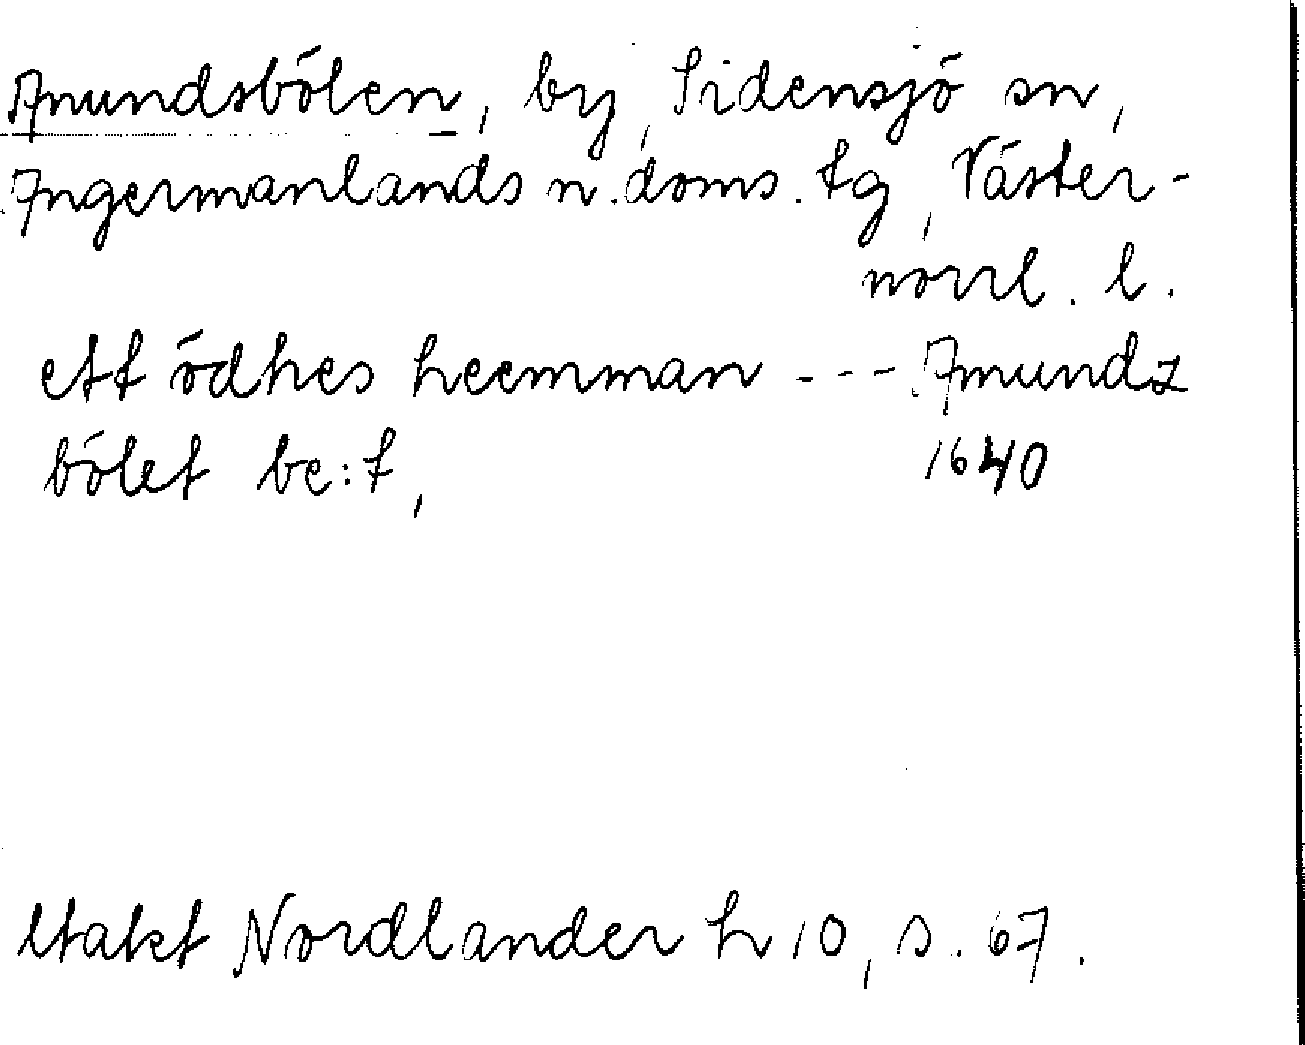 Amundsbölen, by, Sidensjö sn,
Ångermanlands n. doms. tg, Väster-
norrl. l.
ett ödhes heemman --- Amundz
bölet be:t, 1640
Utakt Nordlander h 10, s. 67.